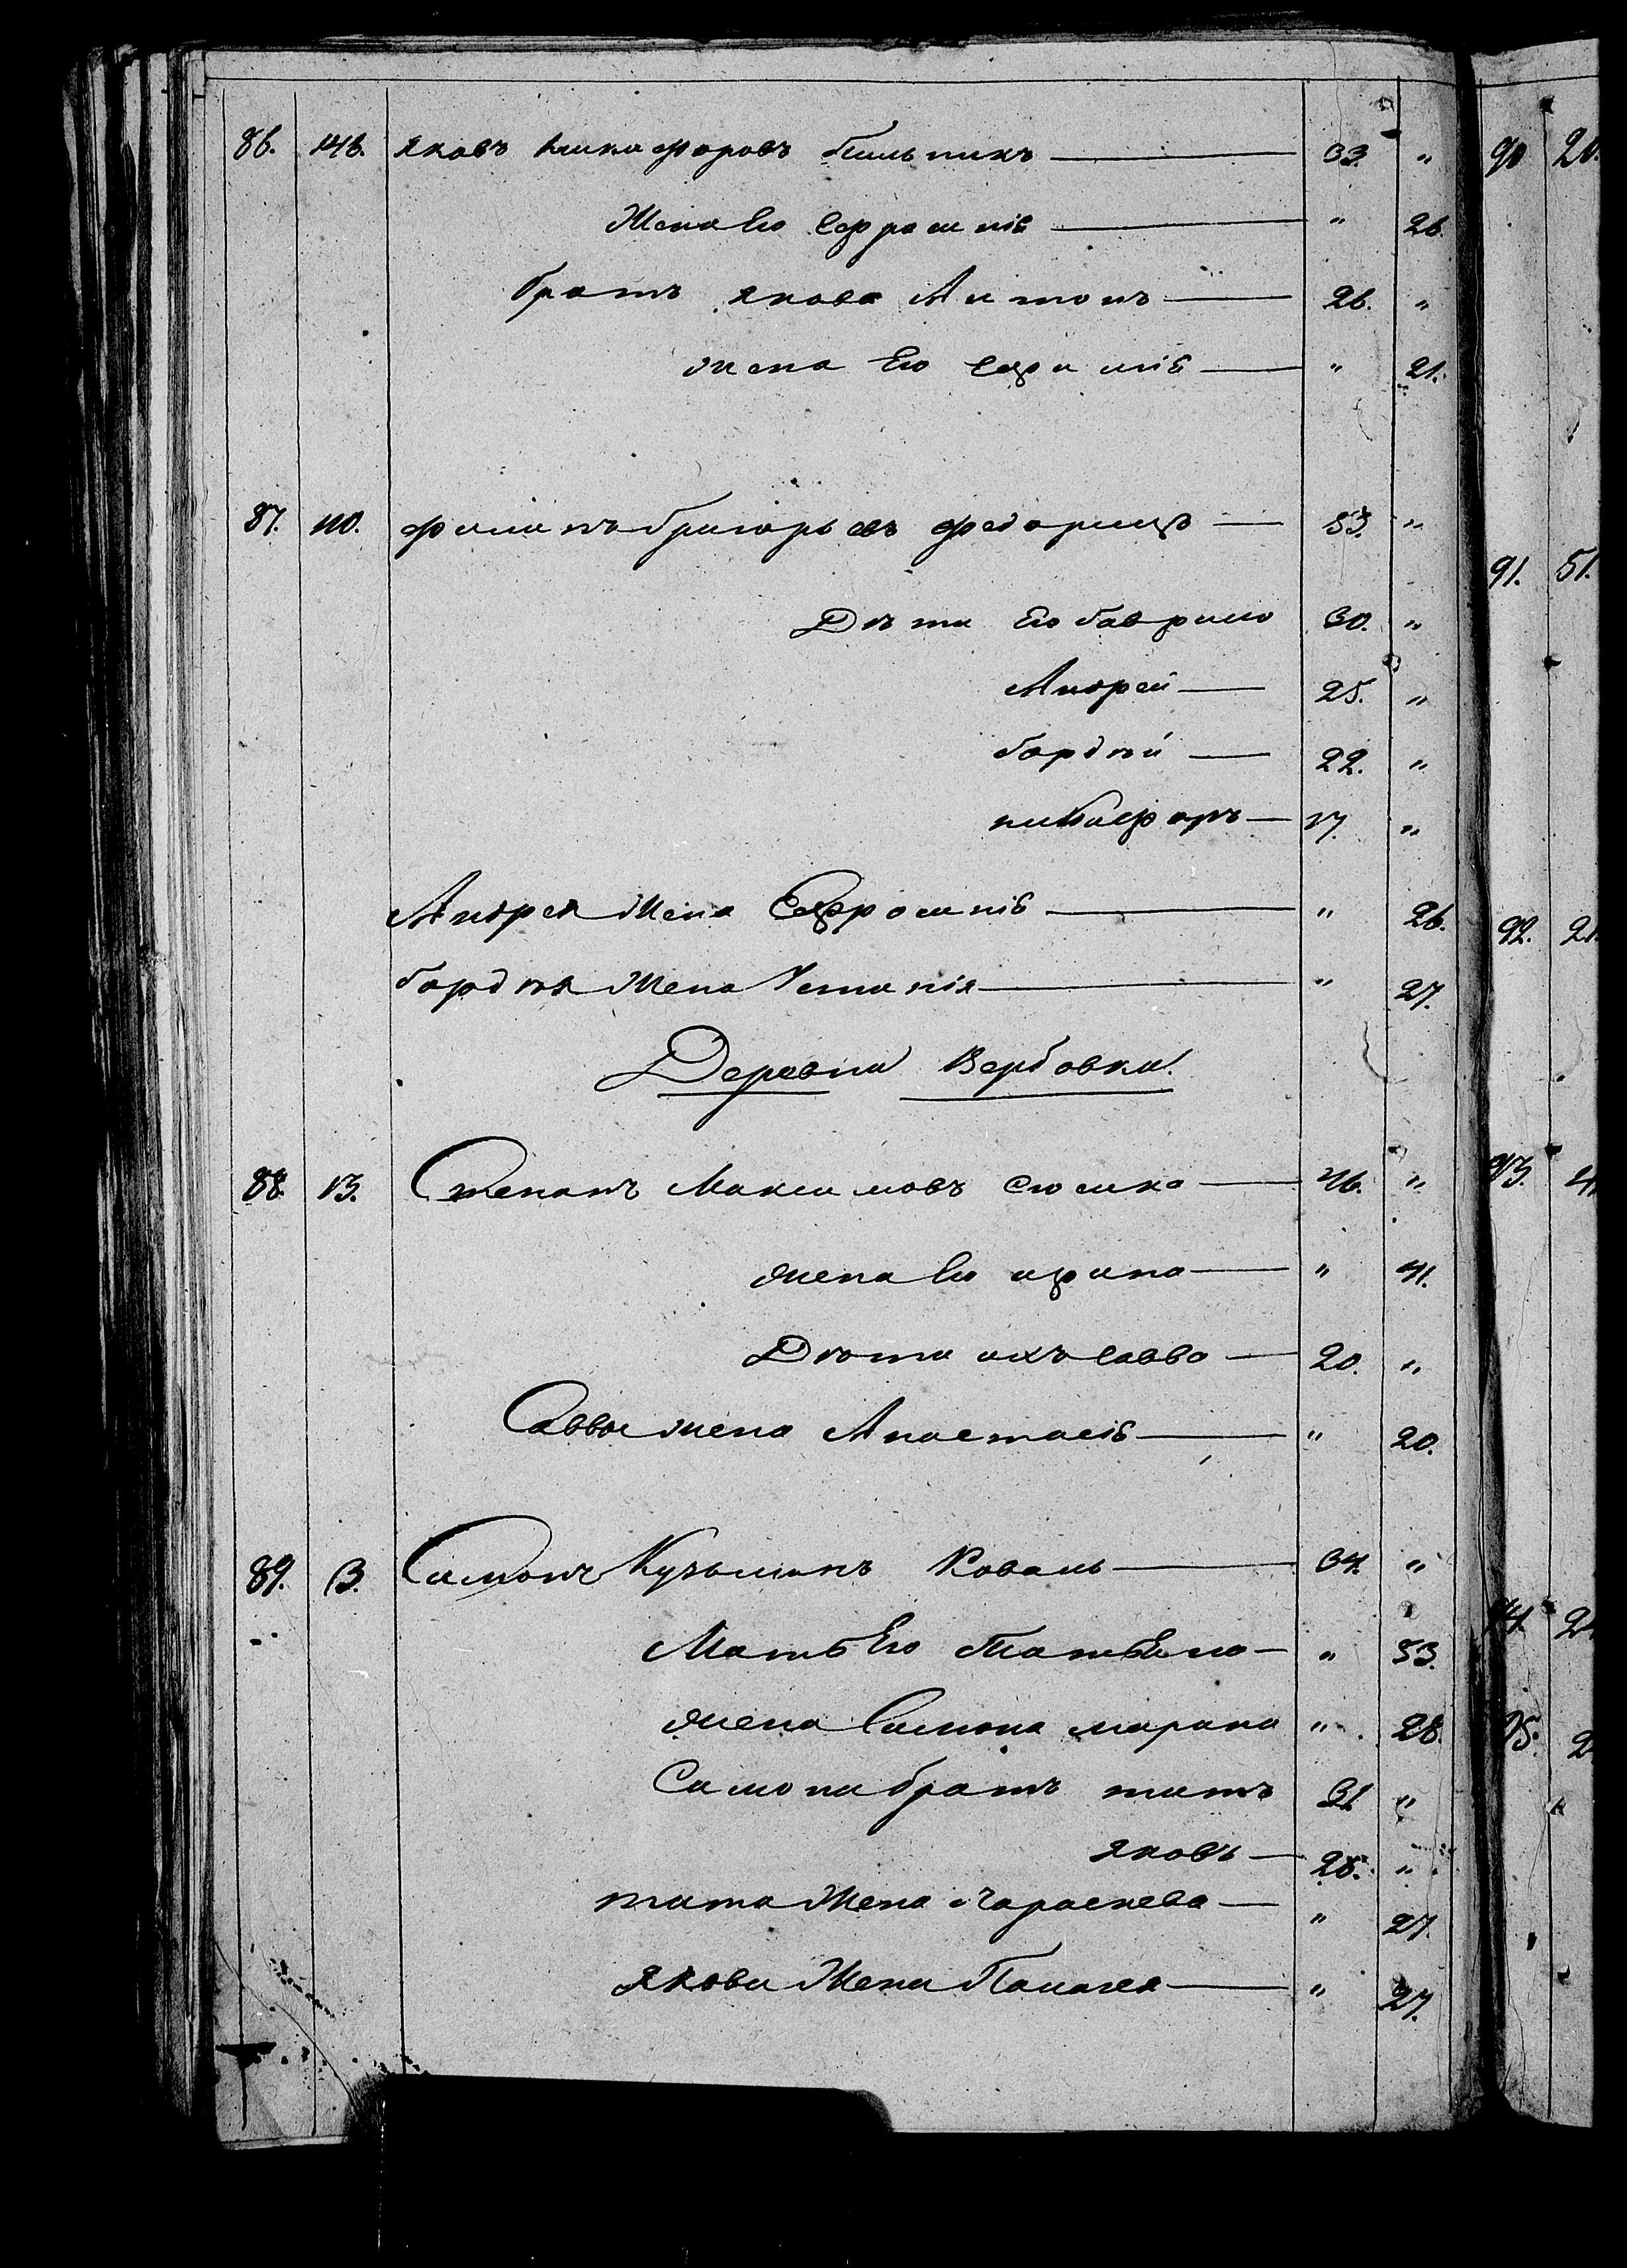 86. 148. Яковъ Никифоровъ Бильникъ — 33. "
Жена Его Ефросиніѣ — " 26.
братъ Якова Антонъ — 26. "
жена Его Ефиміѣ — " 21.
87. 110. Филипъ Григорьевъ Федорищъ — 53. "
Дѣти Его Гаврило 30. "
Андрей — 25. "
Гордѣй — 22. "
никифоръ — 17. "
Андрея Жена Ефросиніѣ — " 26.
Гордѣя Жена Устинія — " 27.
Деревни Вербовки.
88. 13. Степанъ Максимовъ — 46. "
жена Его ирина — " 41.
Дѣти ихъ Савва — 20. "
Саввы жена Анастасіѣ — " 20.
89. 3. Симонъ Кузьминъ Коваль — 34. "
Мать Его Татьяна — " 53.
жена Симона марина " 28.
Симона братъ титъ 31. "
Яковъ — 28. "
тита Жена Параскева — " 27.
Якова Жена Пелагея — " 27.
90 20.
91. 51.
92. 21.
93.
94.
95.